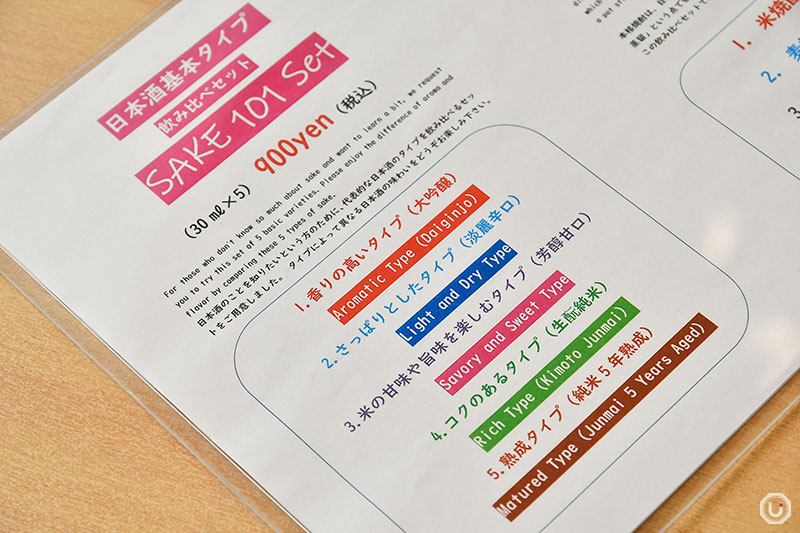 日本酒基本タイプ
飲み比べセット
SAKE 101 Set
(30㎖×5) 900yen (税込)
For those who don't know so much about sake and want to learn a bit, we request
you to try this set of 5 basic varieties. Please enjoy the difference of aroma and
flavor by comparing these 5 types of sake.
日本酒のことを知りたいという方のために、代表的な日本酒のタイプを飲み比べるセッ
トをご用意しました。タイプによって異なる日本酒の味わいをどうぞお楽しみ下さい。
1.香りの高いタイプ(大吟醸)
Aromatic Type (Daiginjo)
2.さっぱりとしたタイプ(淡麗辛口)
Light and Dry Type
3.米の甘味や旨味を楽しむタイプ(芳醇甘口)
Savory and Sweet Type
4.コクのあるタイプ(生酛純米)
Rich Type (Kimoto Junmai)
5.熟成タイプ(純米5年熟成)
Matured Type (Junmai 5 Years Aged)
本格焼酎は、日
蒸留」という点で
この飲み比べセットで
1. 米焼
2. 麦
3